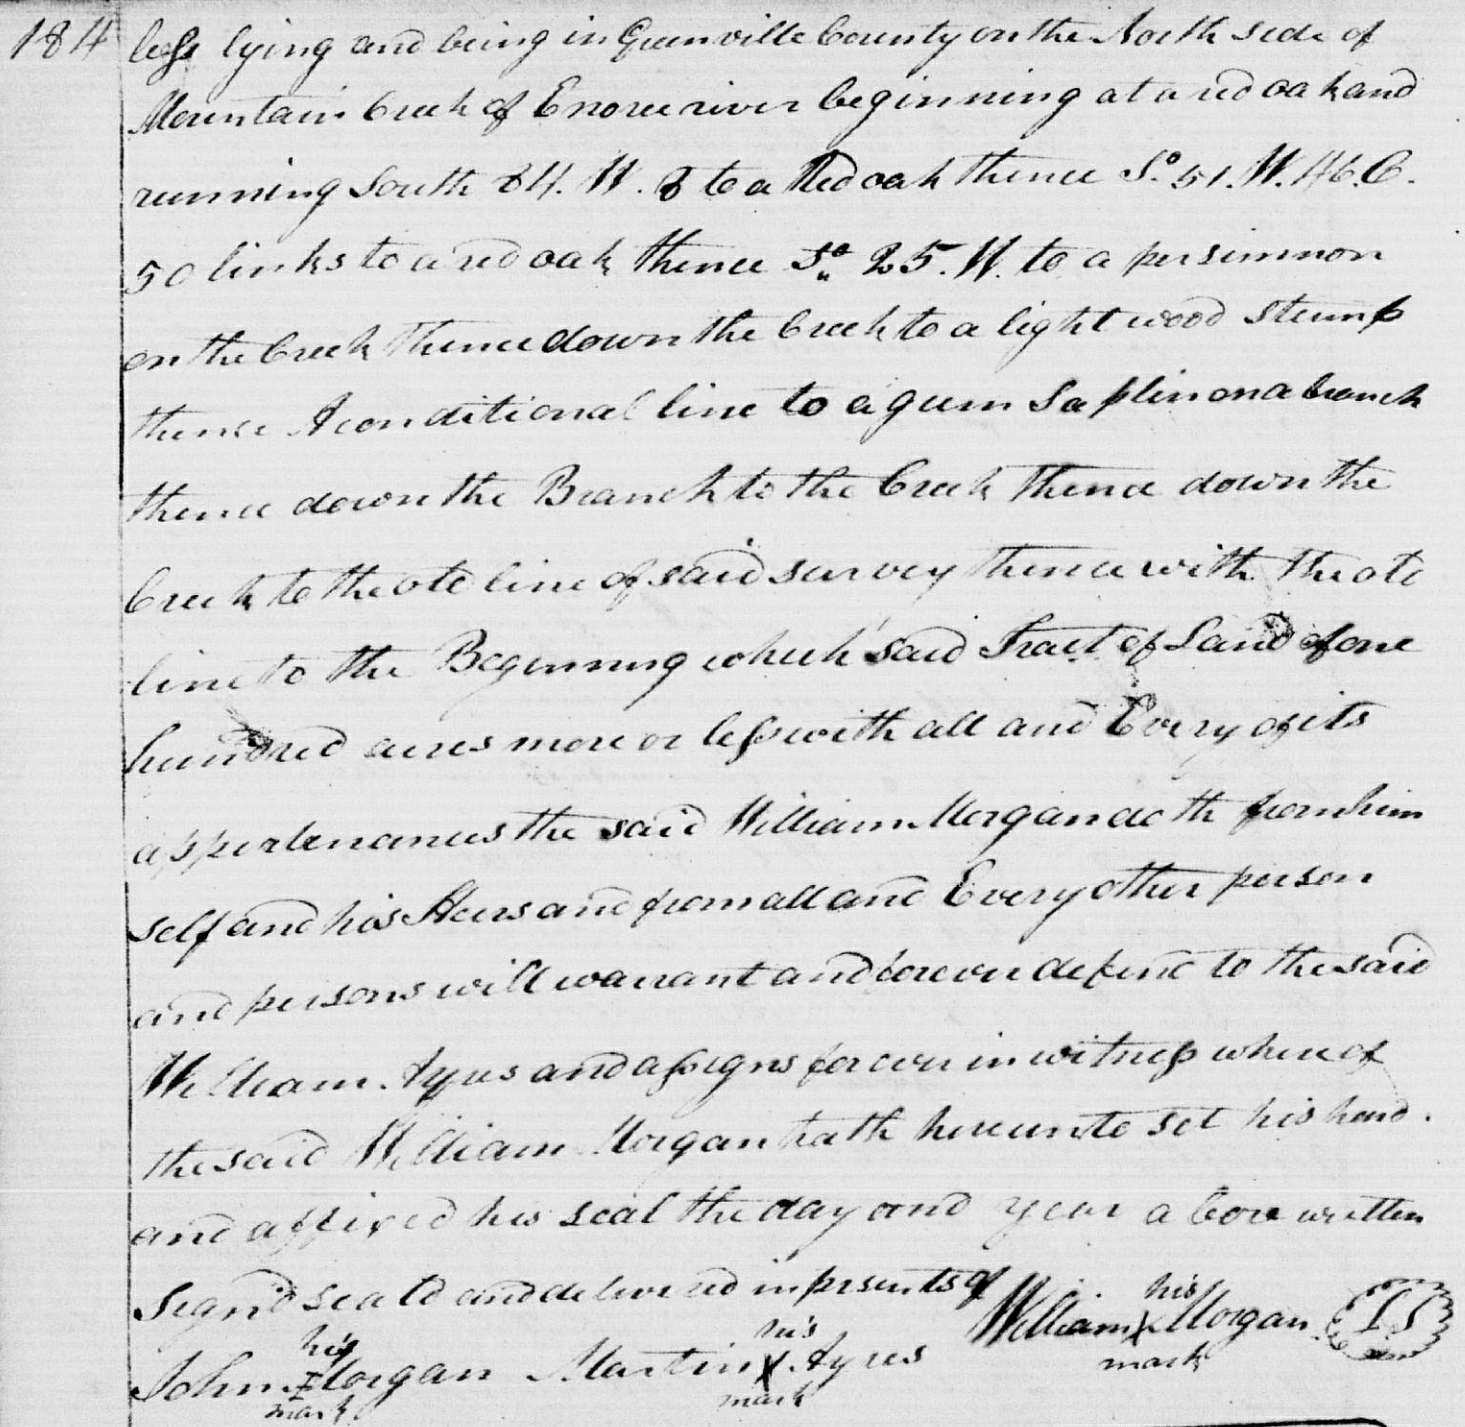 184
less lying and being in Greenville County on the North side of
Mountain Creek of Enoree river beginning at a red oak and
running South 84. W. 8 to a Red oak thence So. 51. W. 46. C.
50 links to a red oak thence So. 25. W. to a persimmon
on the Creek thence down the Creek to a light wood stump
thence A conditional line to a gum saplin on a branch
thence down the Branch to the Creek thence down the
Creek to the old line of said survey thence with the old
line to the Beginning which said Tract of Land of one
hundred acres more or less with all and Every of its
appertenances the said William Morgan doth from him
self and his Heirs and from all and Every other person
and persons will warrant and forever defend to the said
William Ayres and assigns forever in witness where of
the said William Morgan hath hereunto set his hand.
and affixed his seal the day and year above written
Signd seald and delivered in presents of
his
William X Morgan LS
mark
his
John I Morgan
mark
his
Martin X Ayres
mark